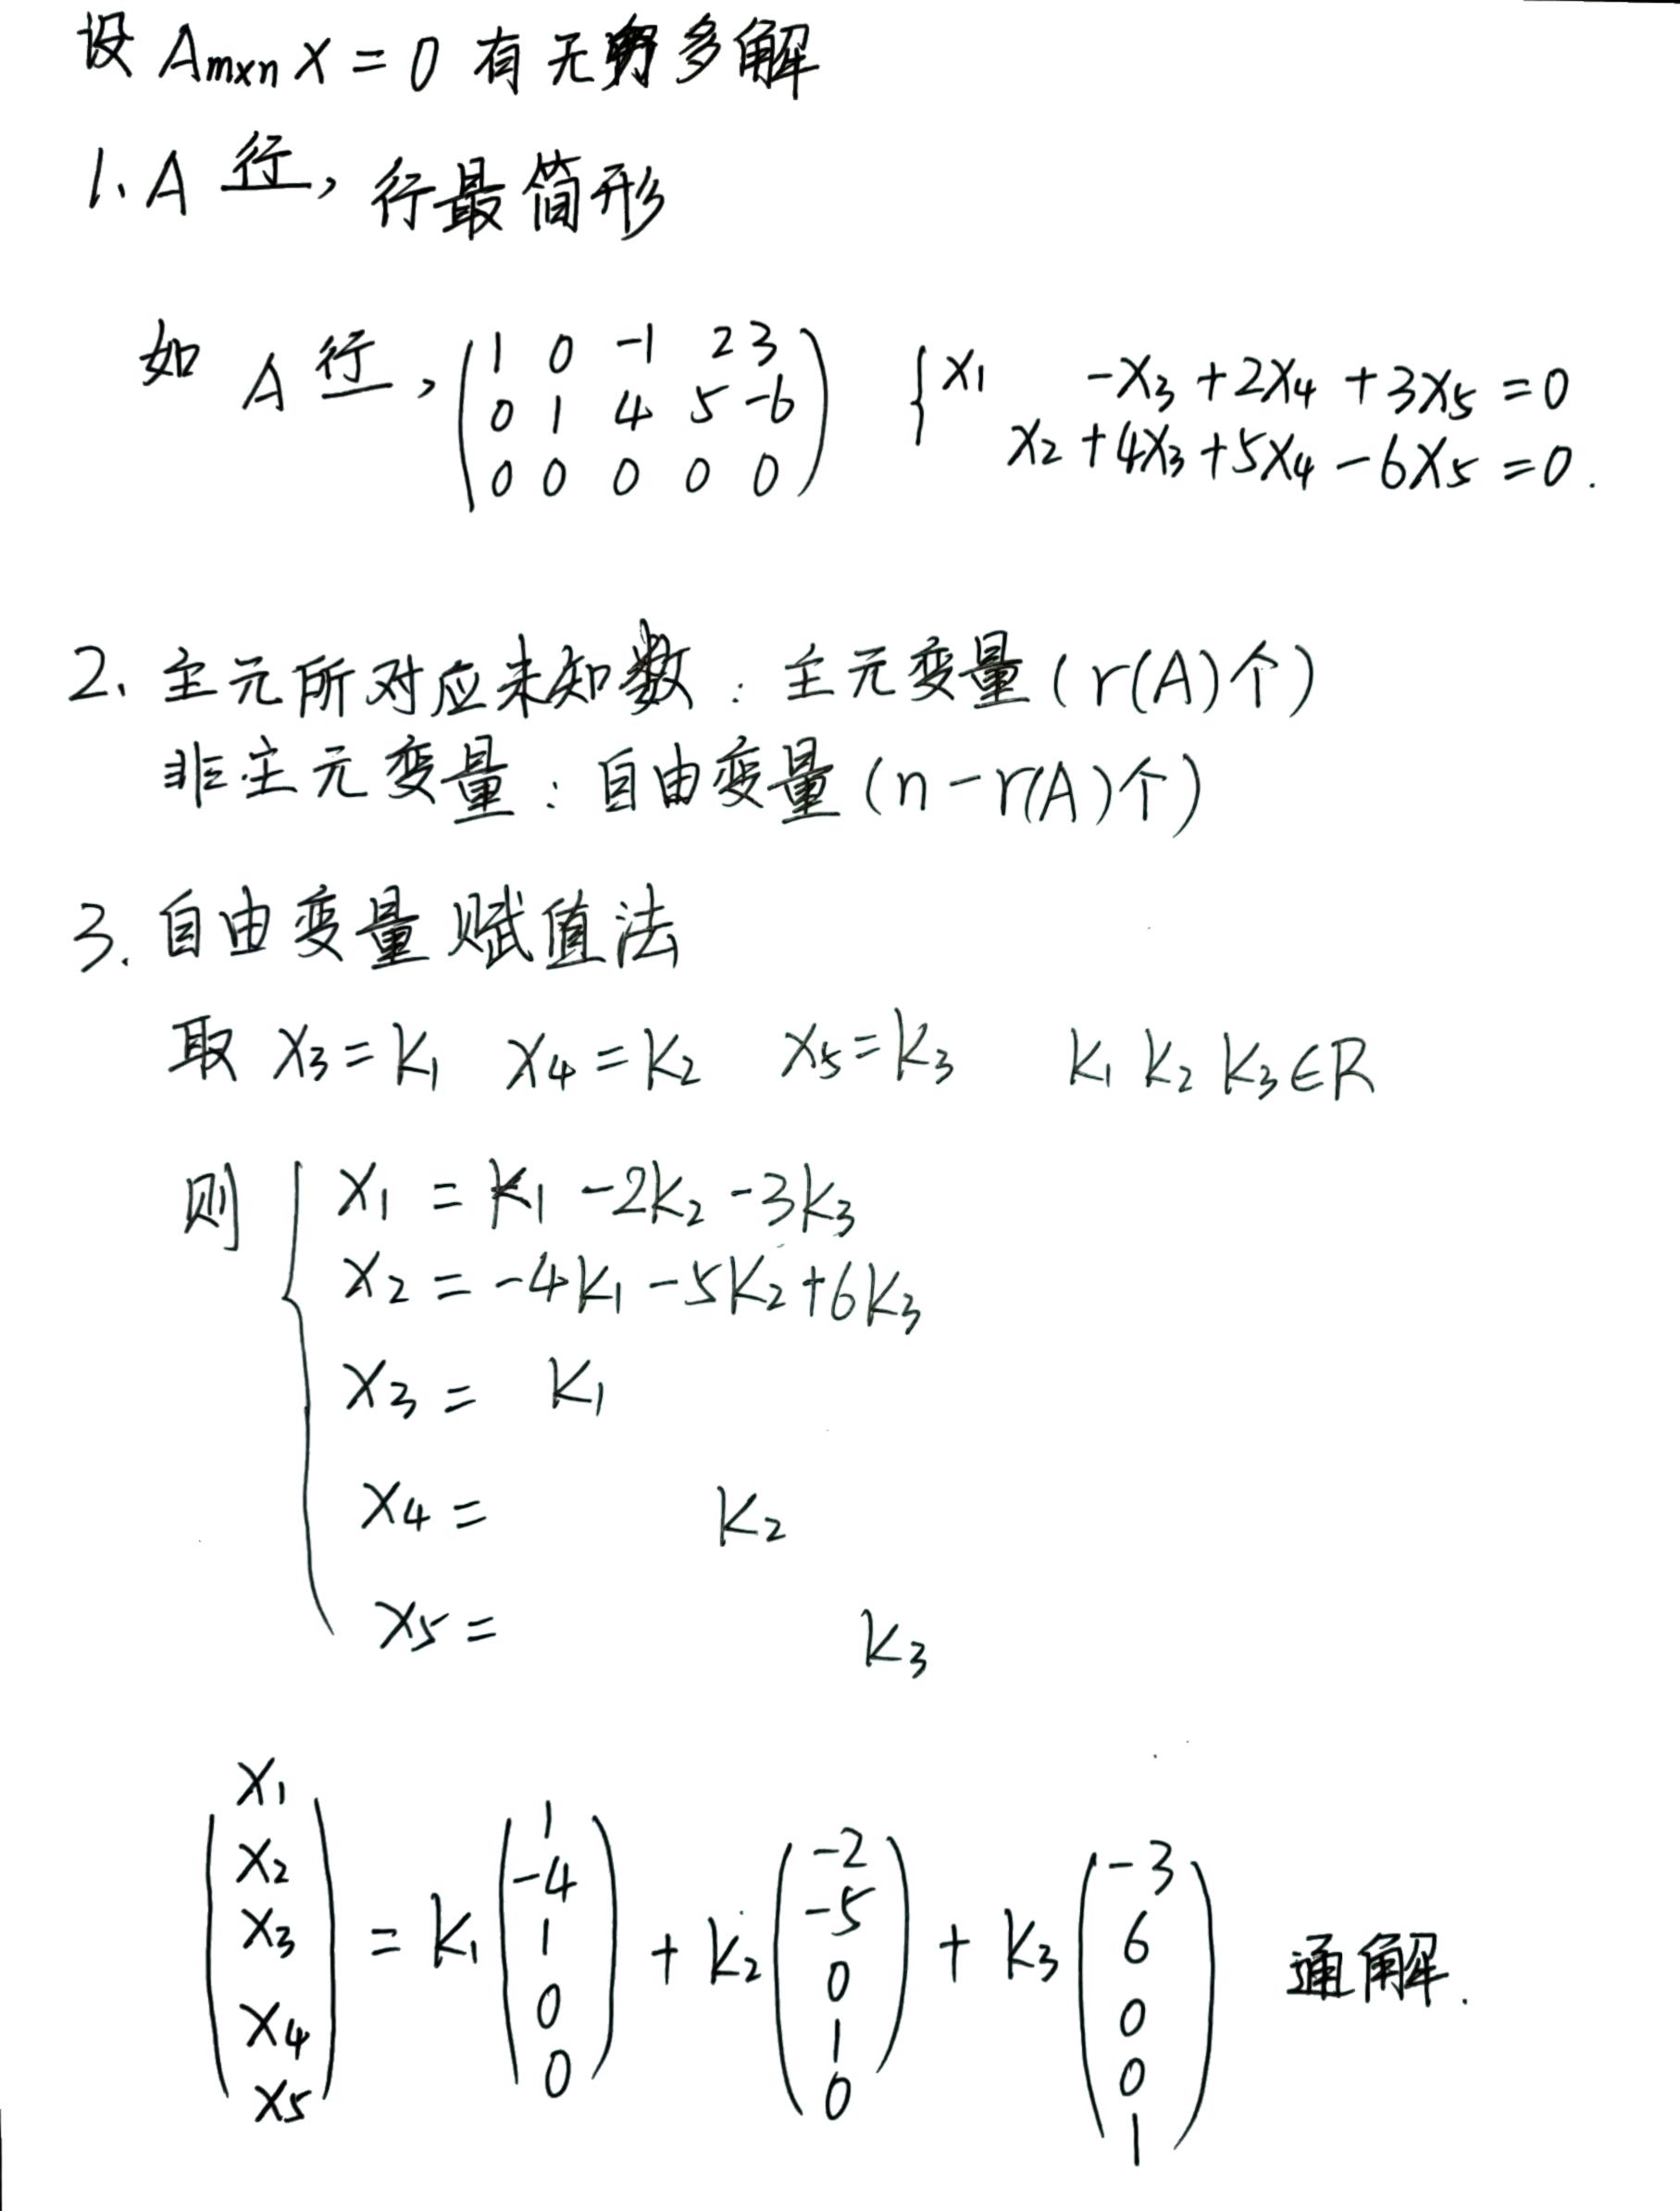 设 Aₘₓₙ X = 0 有无穷多解
1、A 行→ 行最简形
如 A 行→ (1 0 -1 2 3 { x₁ -x₃ +2x₄ +3x₅ =0
0 1 4 5 -6 x₂ +4x₃ +5x₄ -6x₅ =0.
0 0 0 0 0)
2、主元所对应未知数：主元变量(r(A)个)
非主元变量：自由变量(n-r(A)个)
3.自由变量赋值法
取 x₃=k₁ x₄=k₂ x₅=k₃ k₁ k₂ k₃∈R
则 { x₁ = k₁ -2k₂ -3k₃
x₂ = -4k₁ -5k₂ +6k₃
x₃ = k₁
x₄ = k₂
x₅ = k₃
(x₁ x₂ x₃ x₄ x₅) = k₁ (1 -4 1 0 0) + k₂ (-2 -5 0 1 0) + k₃ (-3 6 0 0 1) 通解.